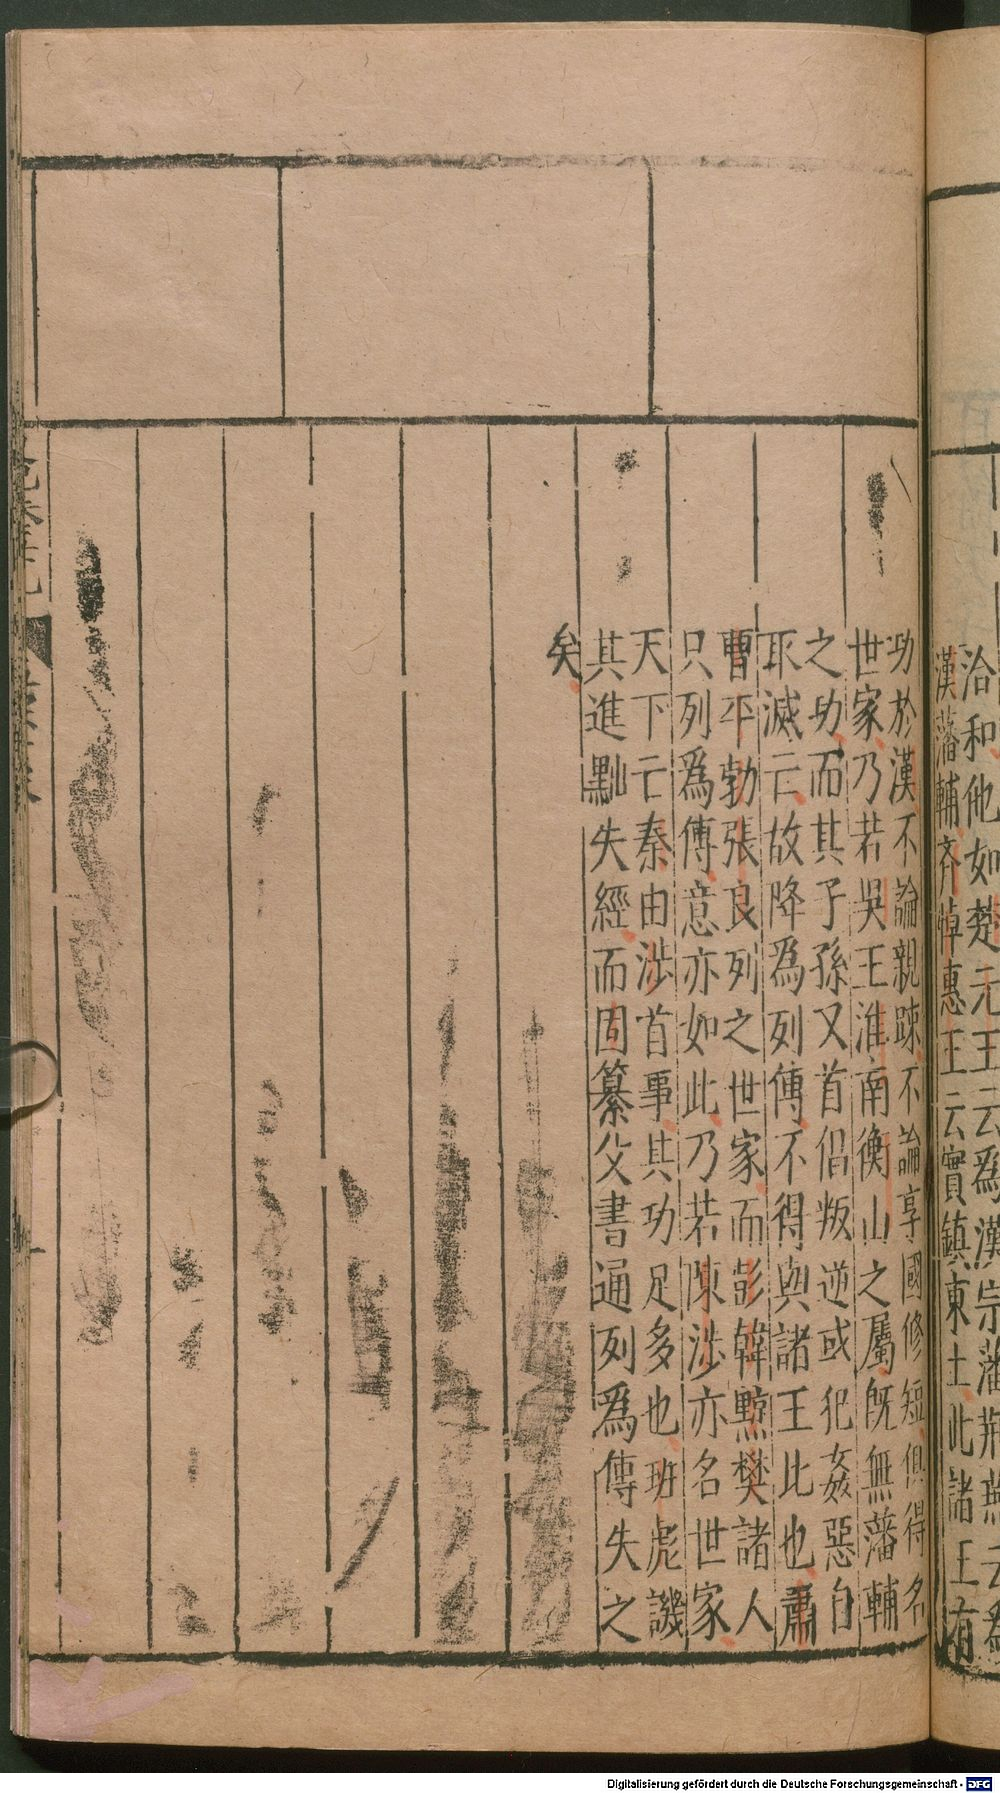 洽和他如楚元王云爲漢宗藩荆燕云爲
漢藩輔齊悼惠王云實鎮東土此諸王有
功於漢不論親踈不論享國修短俱得名
世家乃若吳王淮南衡山之屬旣無藩輔
之功而其子孫又首倡叛逆或犯姦惡自
取滅亡故降爲列傳不得與諸王比也蕭
曹平勃張良列之世家而彭韓黥樊諸人
只列爲傳意亦如此乃若陳涉亦名世家
天下亡秦由涉首事其功足多也班彪譏
其進黜失經而固纂父書通列爲傳失之
矣
Digitalisierung gefördert durch die Deutsche Forschungsgemeinschaft - DFG